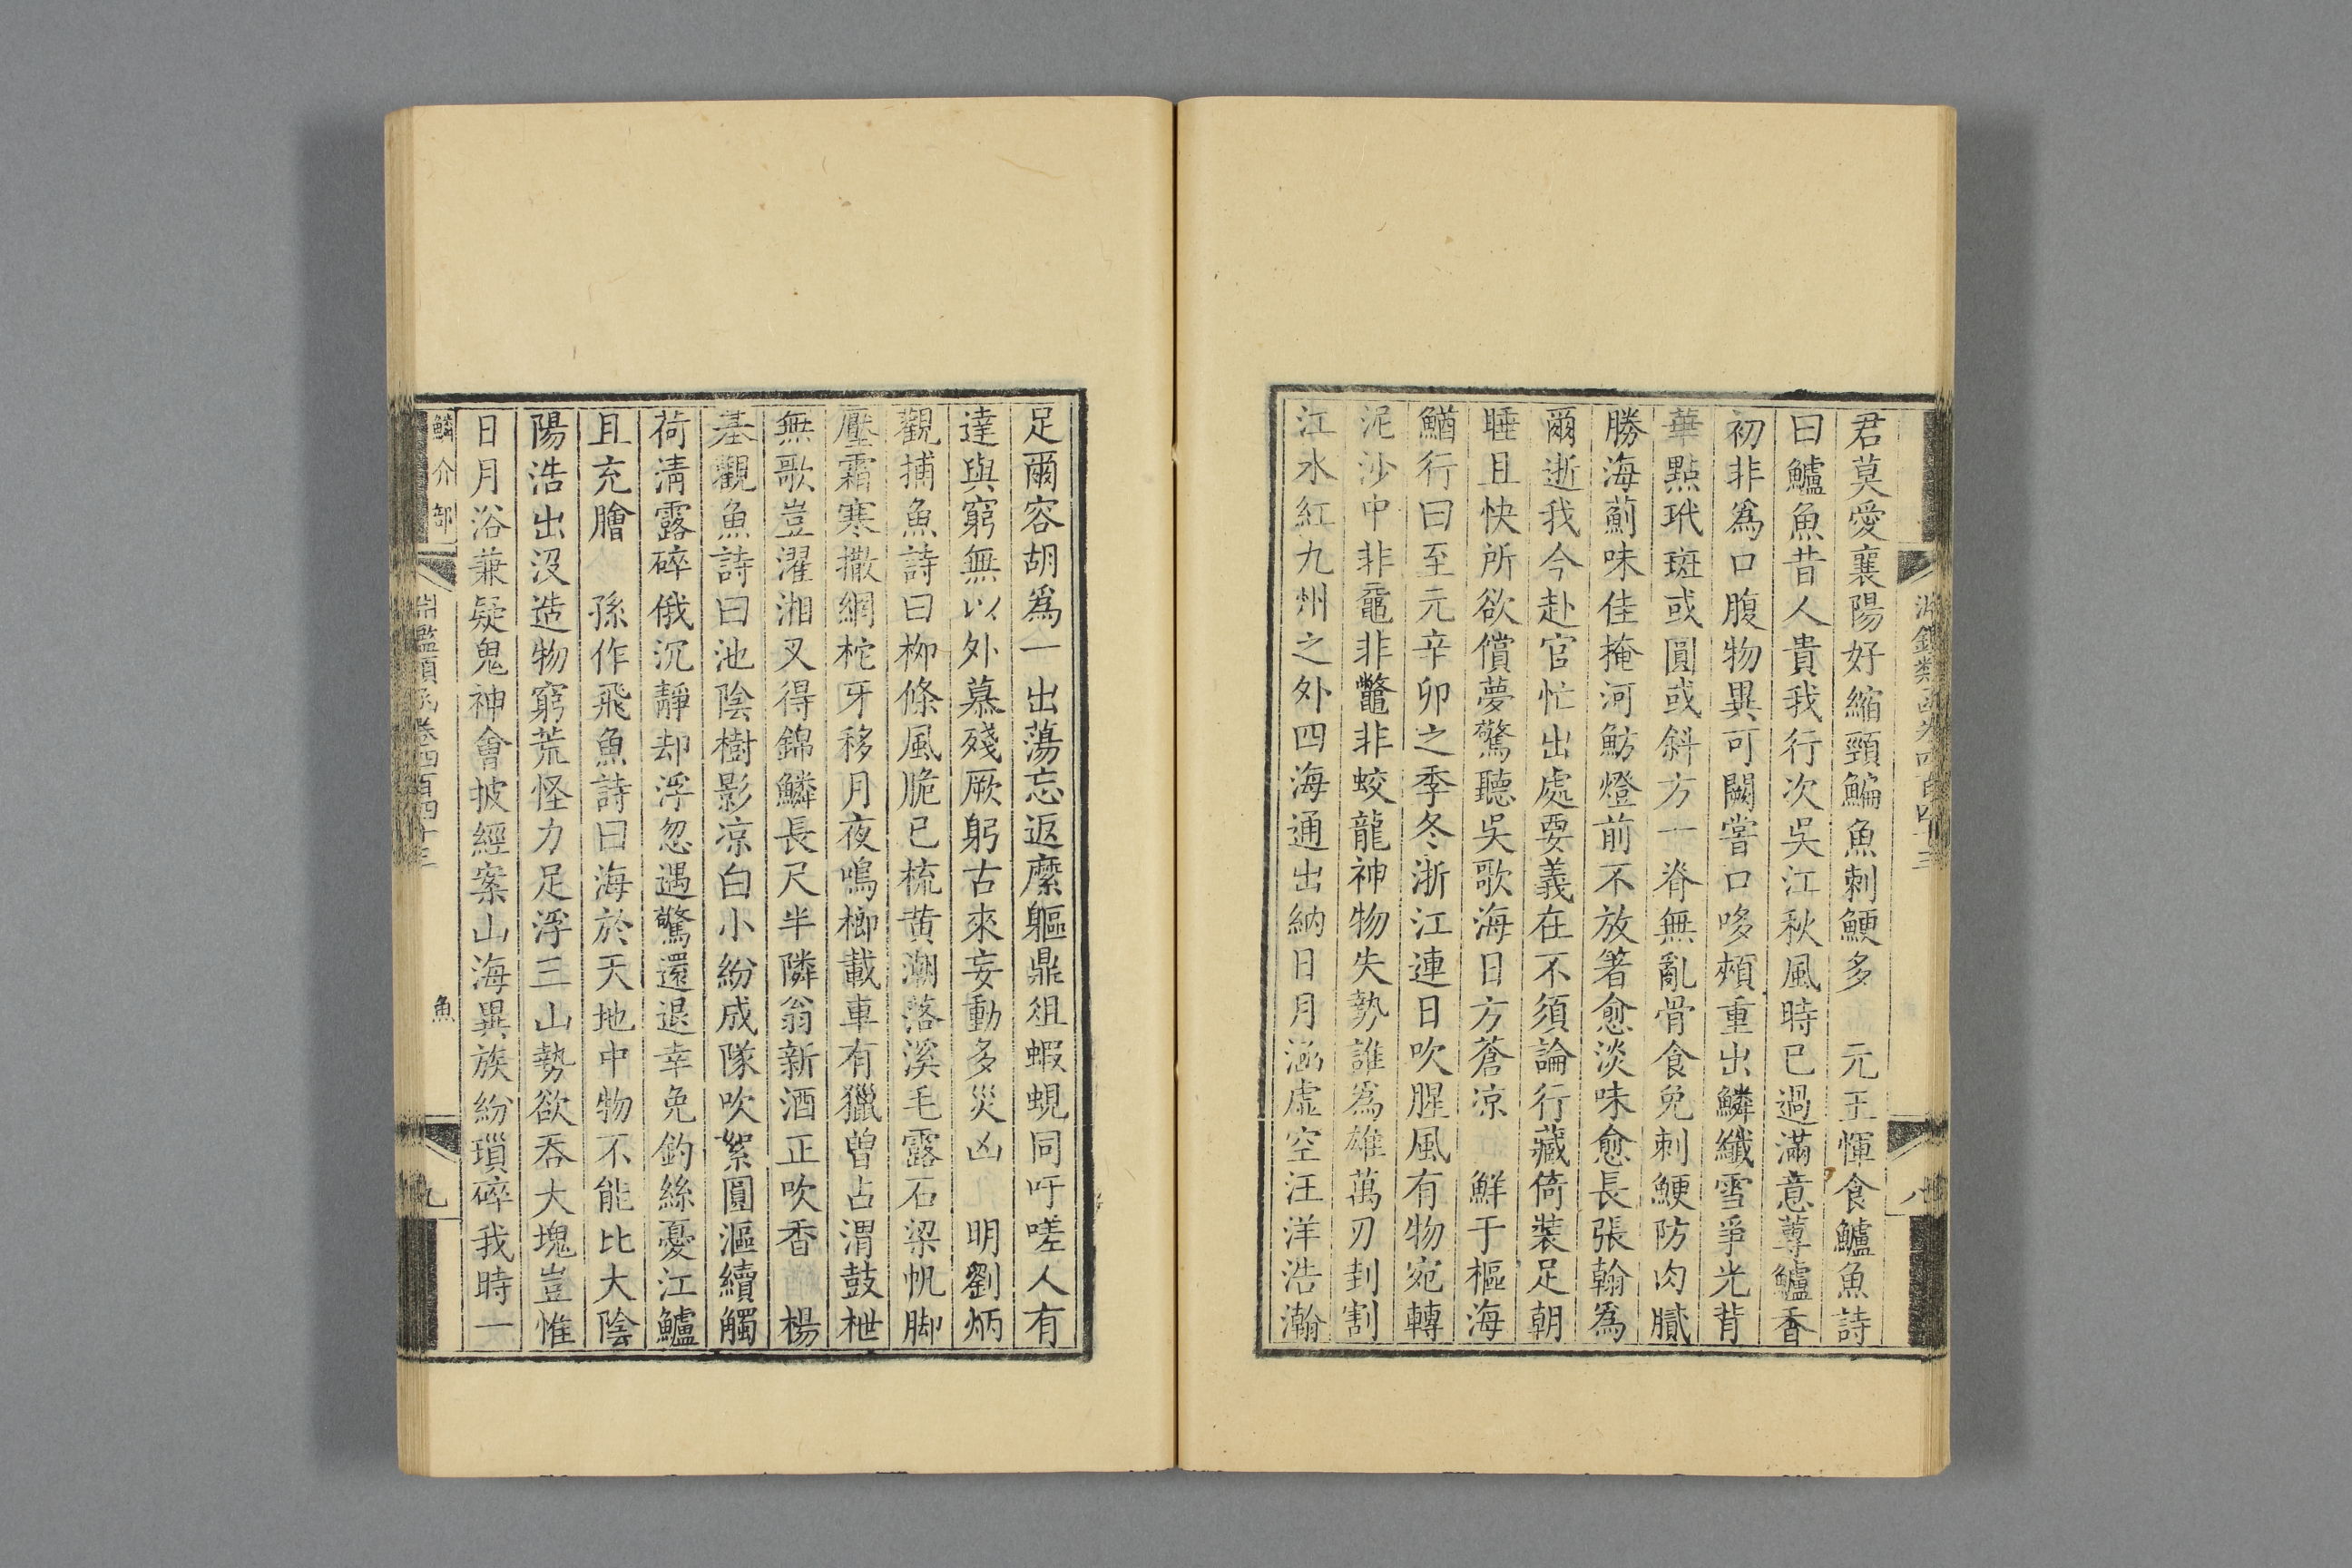 君莫愛襄陽好縮頸鯿魚刺鯁多　元王惲食鱸魚詩
曰鱸魚昔人貴我行次吳江秋風時已過滿意蓴鱸香
初非爲口腹物異可闕嘗口哆頰重出鱗纖雪爭光背
華點玳斑或圓或斜方一脊無亂骨食免刺鯁防肉膩
勝海薊味佳掩河魴燈前不放箸愈淡味愈長張翰爲
爾逝我今赴官忙出處要義在不須論行藏倚裝足朝
睡且快所欲償夢驚聽吳歌海日方蒼凉　鮮于樞海
鰌行曰至元辛卯之季冬浙江連日吹腥風有物宛轉
泥沙中非黿非鼈非蛟龍神物失勢誰爲雄萬刃刲割
江水紅九州之外四海通出納日月涵虛空汪洋浩瀚
足爾容胡爲一出蕩忘返糜軀鼎俎蝦蜆同吁嗟人有
達與窮無以外慕殘厥躬古來妄動多災凶　明劉炳
觀捕魚詩曰柳條風脆已梳黄潮落溪毛露石梁帆脚
壓霜寒撒網柁牙移月夜鳴榔載車有獵曾占渭鼓枻
無歌豈濯湘又得錦鱗長尺半隣翁新酒正吹香　楊
基觀魚詩曰池陰樹影凉白小紛成隊吹絮圓漚續觸
荷清露碎俄沉靜却浮忽遇驚還退幸免釣絲憂江鱸
且充膾　孫作飛魚詩曰海於天地中物不能比大陰
陽浩出沒造物窮荒怪力足浮三山勢欲吞大塊豈惟
日月浴兼疑鬼神會披經案山海異族紛瑣碎我時一
鱗介部
淵鑑類函卷四百四十三
魚
九